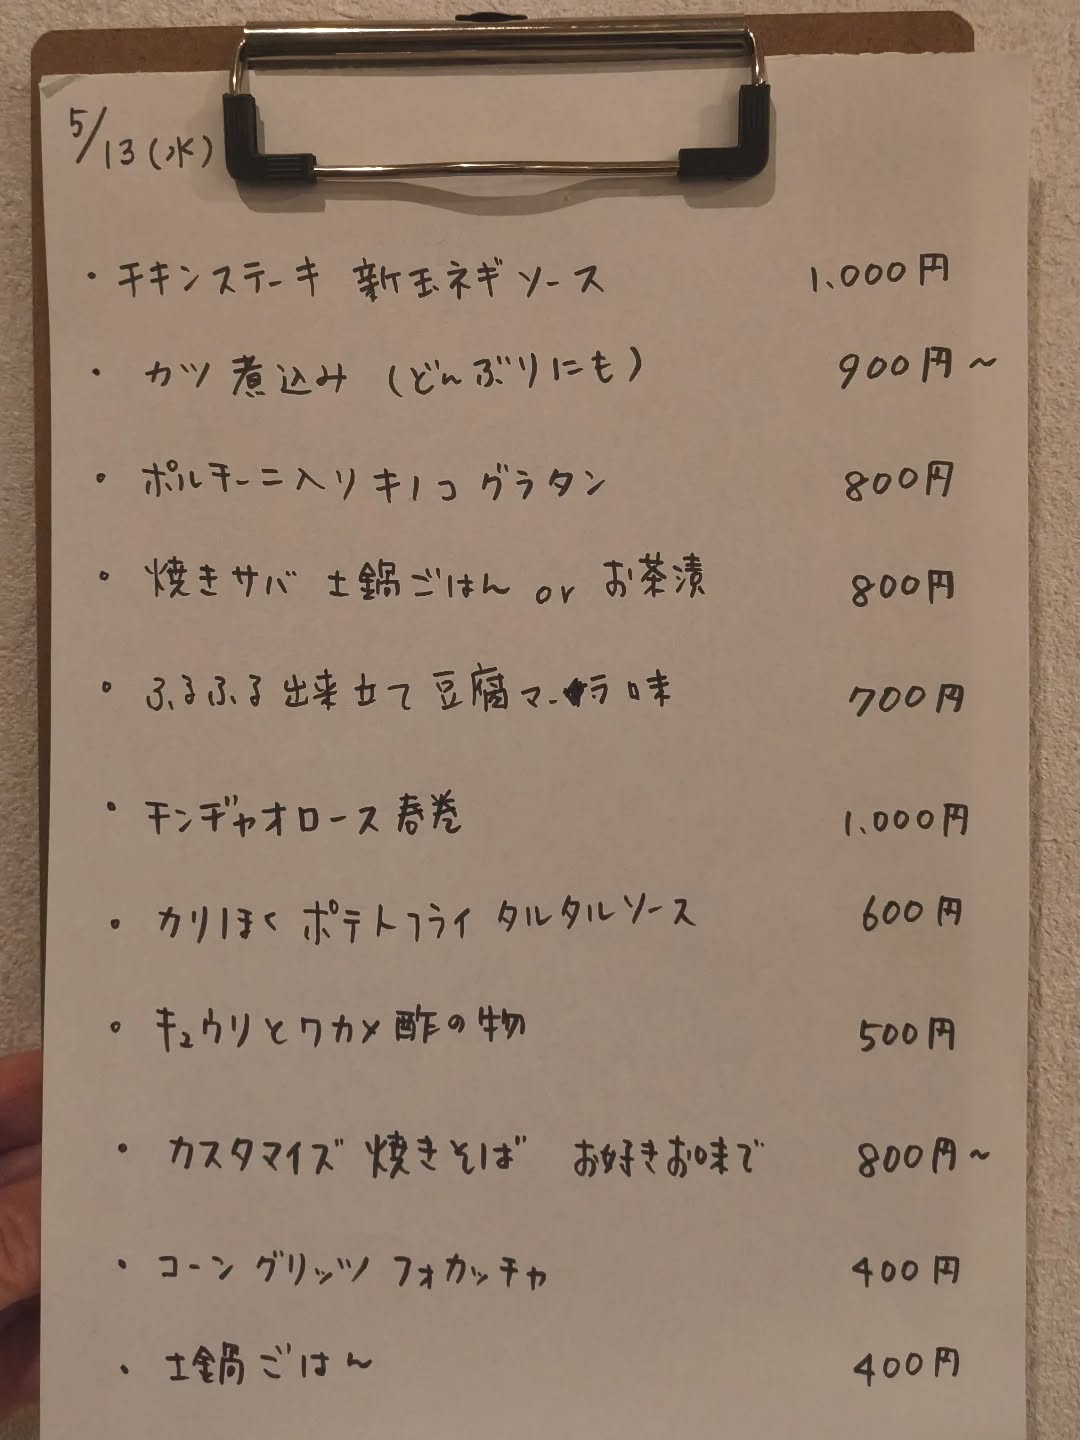 5/13(水)
・チキンステーキ 新玉ネギソース 1,000円
・カツ煮込み (どんぶりにも) 900円~
・ポルチーニ入りキノコグラタン 800円
・焼きサバ 土鍋ごはん or お茶漬 800円
・ふるふる出来立て豆腐マーラ味 700円
・チンヂャオロース春巻 1,000円
・カリほく ポテトフライ タルタルソース 600円
・キュウリとワカメ酢の物 500円
・カスタマイズ 焼きそば お好きお味で 800円~
・コーングリッツ フォカッチャ 400円
・土鍋ごはん 400円